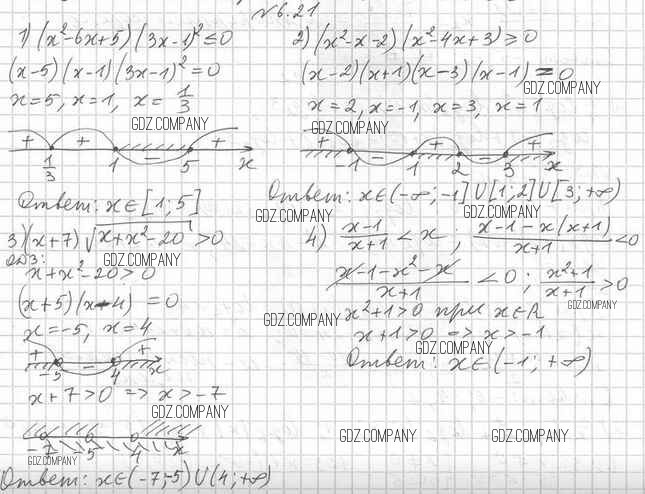 №6.21
1) (x²-6x+5)(3x-1)²≤0
(x-5)(x-1)(3x-1)²=0
x=5, x=1, x= 1/3
GDZ.COMPANY
+ + - +
1/3 1 5 x
Ответ: x∈[1;5]
2) (x²-x-2)(x²-4x+3)≥0
(x-2)(x+1)(x-3)(x-1)=0
GDZ.COMPANY
x=2, x=-1, x=3, x=1
GDZ.COMPANY
+ - + - +
-1 1 2 3 x
Ответ: x∈(-∞;-1]∪[1;2]∪[3;+∞)
GDZ.COMPANY
GDZ.COMPANY
3) (x+7)√(x+x²-20)>0
ОДЗ:
x+x²-20>0
GDZ.COMPANY
(x+5)(x-4)=0
x=-5, x=4
+ - +
-5 4 x
x+7>0 => x>-7
GDZ.COMPANY
-7 -5 4 x
GDZ.COMPANY
Ответ: x∈(-7;-5)∪(4;+∞)
4) (x-1)/(x+1)<x ; (x-1-x(x+1))/(x+1)<0
(x-1-x²-x)/(x+1)<0; (x²+1)/(x+1)>0
GDZ.COMPANY
GDZ.COMPANY
x²+1>0 при x∈R
x+1>0 => x>-1
GDZ.COMPANY
Ответ: x∈(-1;+∞)
GDZ.COMPANY
GDZ.COMPANY